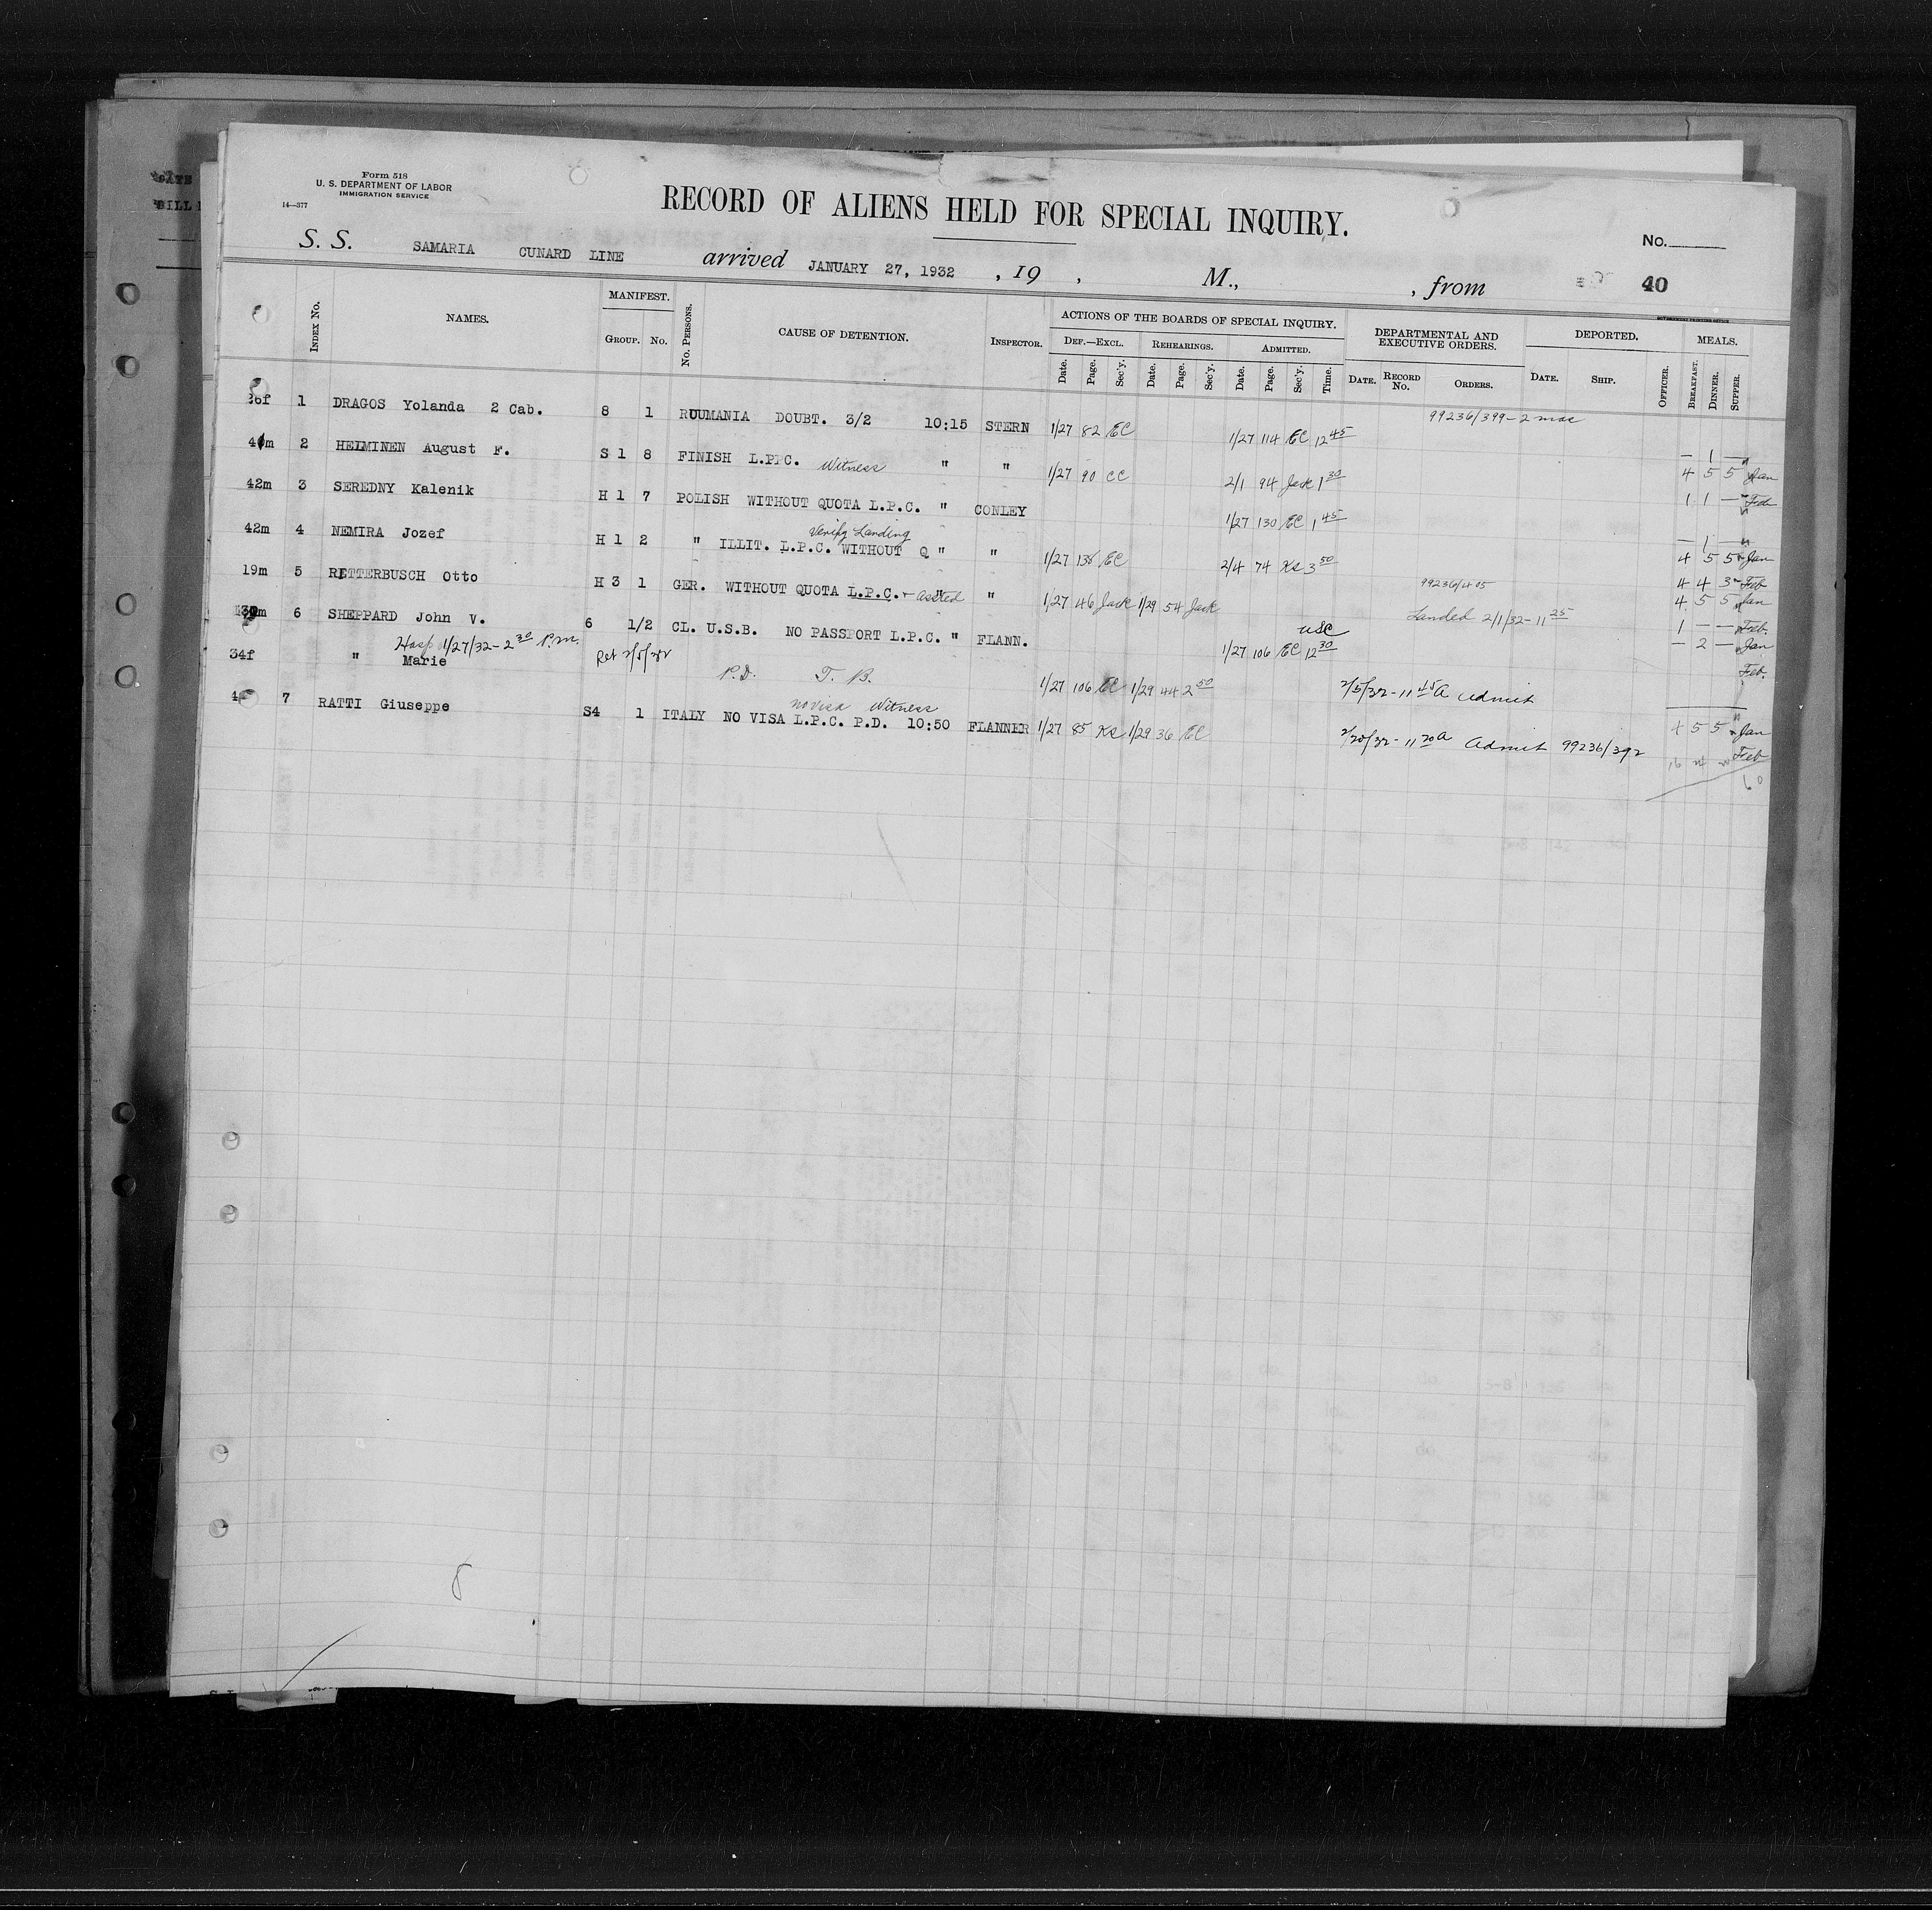 Form 518
U. S. DEPARTMENT OF LABOR
IMMIGRATION SERVICE
14—377
RECORD OF ALIENS HELD FOR SPECIAL INQUIRY.
No.
S. S. SAMARIA CUNARD LINE arrived JANUARY 27, 1932 , 19 , M., , from 40
INDEX No. NAMES. MANIFEST. GROUP. No. No. PERSONS. CAUSE OF DETENTION. INSPECTOR. ACTIONS OF THE BOARDS OF SPECIAL INQUIRY. DEPARTMENTAL AND EXECUTIVE ORDERS. DEPORTED. MEALS.
DEF.—EXCL. REHEARINGS. ADMITTED.
Date. Page. Sec'y. Date. Page. Sec'y. Date. Page. Sec'y. Time. DATE. RECORD No. ORDERS. DATE. SHIP. OFFICER. BREAKFAST. DINNER. SUPPER.
1 DRAGOS Yolanda 2 Cab. 8 1 RUUMANIA DOUBT. 3/2 10:15 STERN 1/27 82 EC 1/27 114 EC 12 45 99236/399-2 mos — 1 —
2 HELMINEN August F. S 1 8 FINISH L.PPC. Witness " " 1/27 90 CC 2/1 94 Jack 1 30 4 5 5 Jan
1 1 — Feb
42m 3 SEREDNY Kalenik H 1 7 POLISH WITHOUT QUOTA L.P.C. " CONLEY 1/27 130 EC 1 45 — 1 —
Verify Landing
42m 4 NEMIRA Jozef H 1 2 " ILLIT. L.P.C. WITHOUT Q " " 1/27 136 EC 2/4 74 Ks 3 50 4 5 5 Jan
4 4 3 Feb
19m 5 RETTERBUSCH Otto H 3 1 GER. WITHOUT QUOTA L.P.C. + assted " 1/27 46 Jack 1/29 54 Jack 99236/405 Landed 2/1/32-11 25 4 5 5 Jan
1 — — Feb.
6 SHEPPARD John V. 6 1/2 CL. U.S.B. NO PASSPORT L.P.C. " FLANN. USC 1/27 106 EC 12 30 — 2 — Jan
Hosp 1/27/32-2 30 P.m. Ret 2/5/32
34f " Marie P.D. T. B. 1/27 106 EC 1/29 44 2 50 2/5/32-11 45 A Admit Feb.
no visa Witness
7 RATTI Giuseppe S4 1 ITALY NO VISA L.P.C. P.D. 10:50 FLANNER 1/27 85 Ks 1/29 36 EC 2/20/32-11 20 A Admit 99236/392 4 5 5 Jan
Feb
60
8